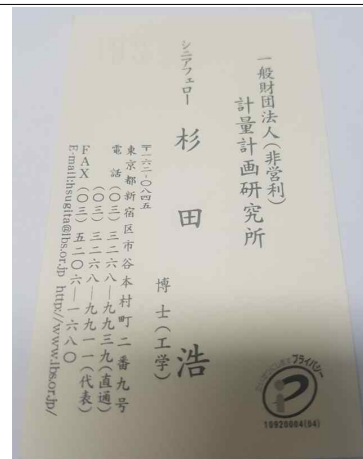 一般財団法人(非営利)
計量計画研究所
シニアフェロー
杉田 浩
博士(工学)
〒一六二-〇八四五
東京都新宿区市谷本村町二番九号
電話(〇三)三二六八―九九三九(直通)
(〇三)三二六八―九九一一(代表)
FAX(〇三)五二〇六―一六八〇
E-mail:hsugita@ibs.or.jp http://www.ibs.or.jp/
プライバシー
10920004(04)